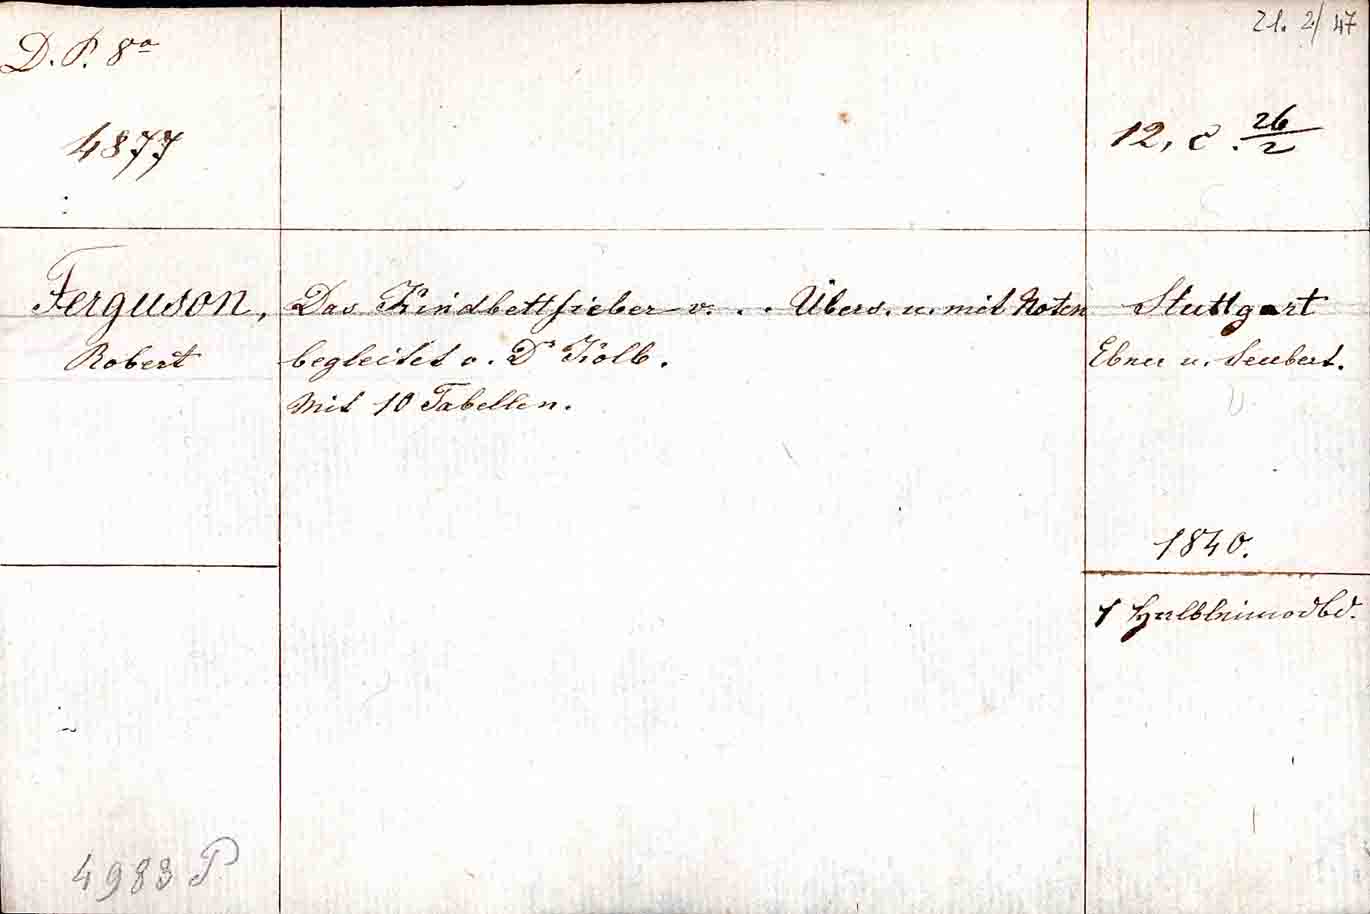 D. P. 8º
4877
Ferguson,
Robert
4983 P
Das Kindbettfieber v. . . Übers. u. mit Noten
begleitet v. Dr Kolb.
Mit 10 Tabellen.
21. 2/47
12, c. 26/2
Stuttgart
Ebner u. Seubert.
1840.
1 Halbleinwdbd.